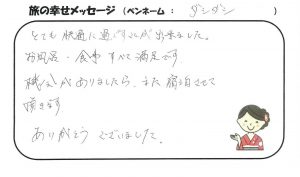 旅の幸せメッセージ（ペンネーム： ダンダン ）
とても快適に過ごすことが出来ました。
お風呂・食事すべて満足です。
機会がありましたら、また宿泊させて
頂きます
ありがとうございました。